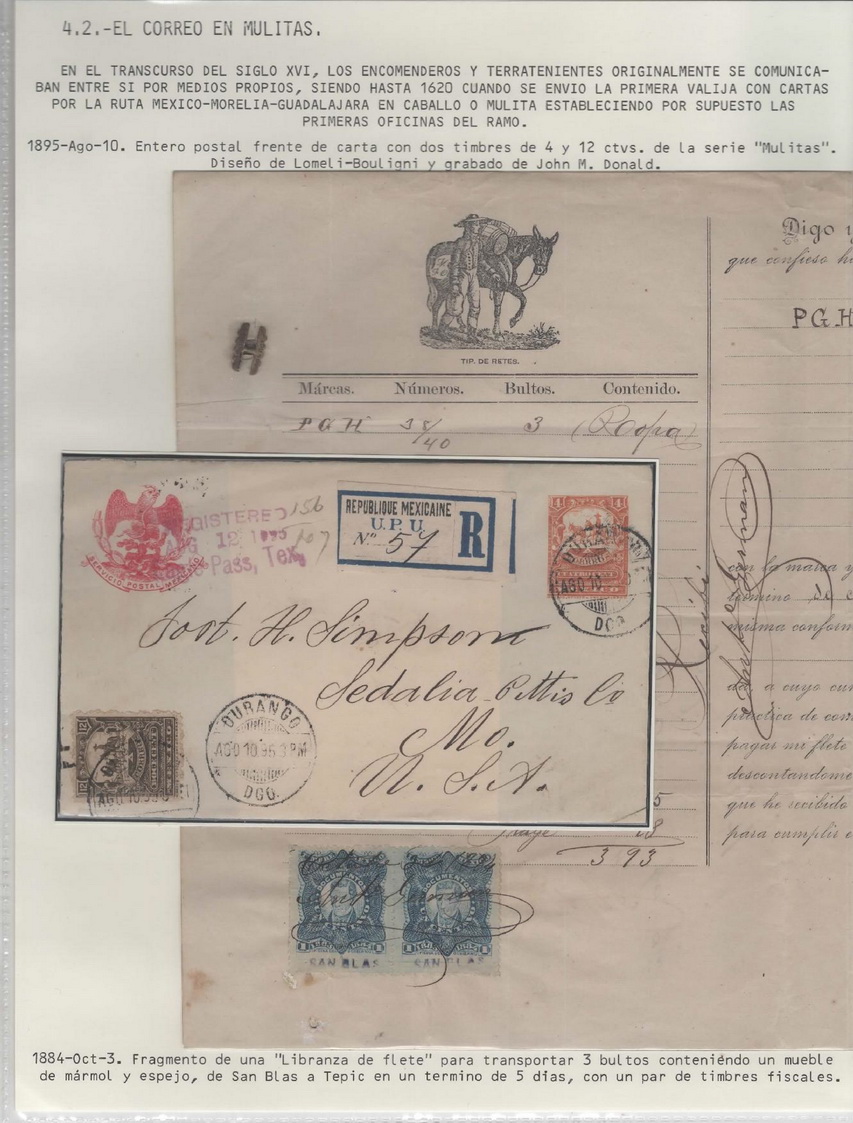 4.2.-EL CORREO EN MULITAS.
EN EL TRANSCURSO DEL SIGLO XVI, LOS ENCOMENDEROS Y TERRATENIENTES ORIGINALMENTE SE COMUNICA-
BAN ENTRE SI POR MEDIOS PROPIOS, SIENDO HASTA 1620 CUANDO SE ENVIO LA PRIMERA VALIJA CON CARTAS
POR LA RUTA MEXICO-MORELIA-GUADALAJARA EN CABALLO O MULITA ESTABLECIENDO POR SUPUESTO LAS
PRIMERAS OFICINAS DEL RAMO.
1895-Ago-10. Entero postal frente de carta con dos timbres de 4 y 12 ctvs. de la serie "Mulitas".
Diseño de Lomeli-Bouligni y grabado de John M. Donald.
TIP. DE RETES.
Márcas. Números. Bultos. Contenido.
PGH 38/40 3 (Ropa)
Digo y
que confieso h
PGH
SERVICIO POSTAL MEXICANO
GISTERED
12 1895
Pass, Tex.
156
107
REPUBLIQUE MEXICAINE
U.P.U.
Nº 57
R
4 4
AGO 10
DGO.
Jost. H. Simpson
Sedalia Pettis Co
Mo.
U. S. A.
12 12
DURANGO
AGO 10.95 3 PM
DGO.
AGO 10.95
Recibí
con la marca y
termino de c
misma conform
da, a cuyo cum
práctica de corr
pagar mi flete
descontandome
que he recibido
para cumplir c
5
18
3 93
DOCUMENTOS
DOCUMENTOS
SAN BLAS SAN BLAS
1884-Oct-3. Fragmento de una "Libranza de flete" para transportar 3 bultos conteniéndo un mueble
de mármol y espejo, de San Blas a Tepic en un termino de 5 dias, con un par de timbres fiscales.